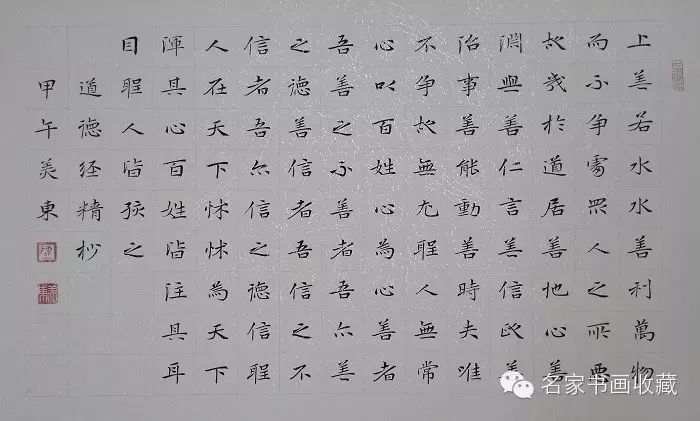 上善若水水善利萬物
而不争處眾人之所惡
故幾於道居善地心善
淵與善仁言善信政善
治事善能動善時夫唯
不争故無尤聖人無常
心以百姓心為心善者
吾善之不善者吾亦善
之德善信者吾信之不
信者吾亦信之德信聖
人在天下怵怵為天下
渾其心百姓皆注其耳
目聖人皆孩之
道德经精抄
甲午美東
名家书画收藏